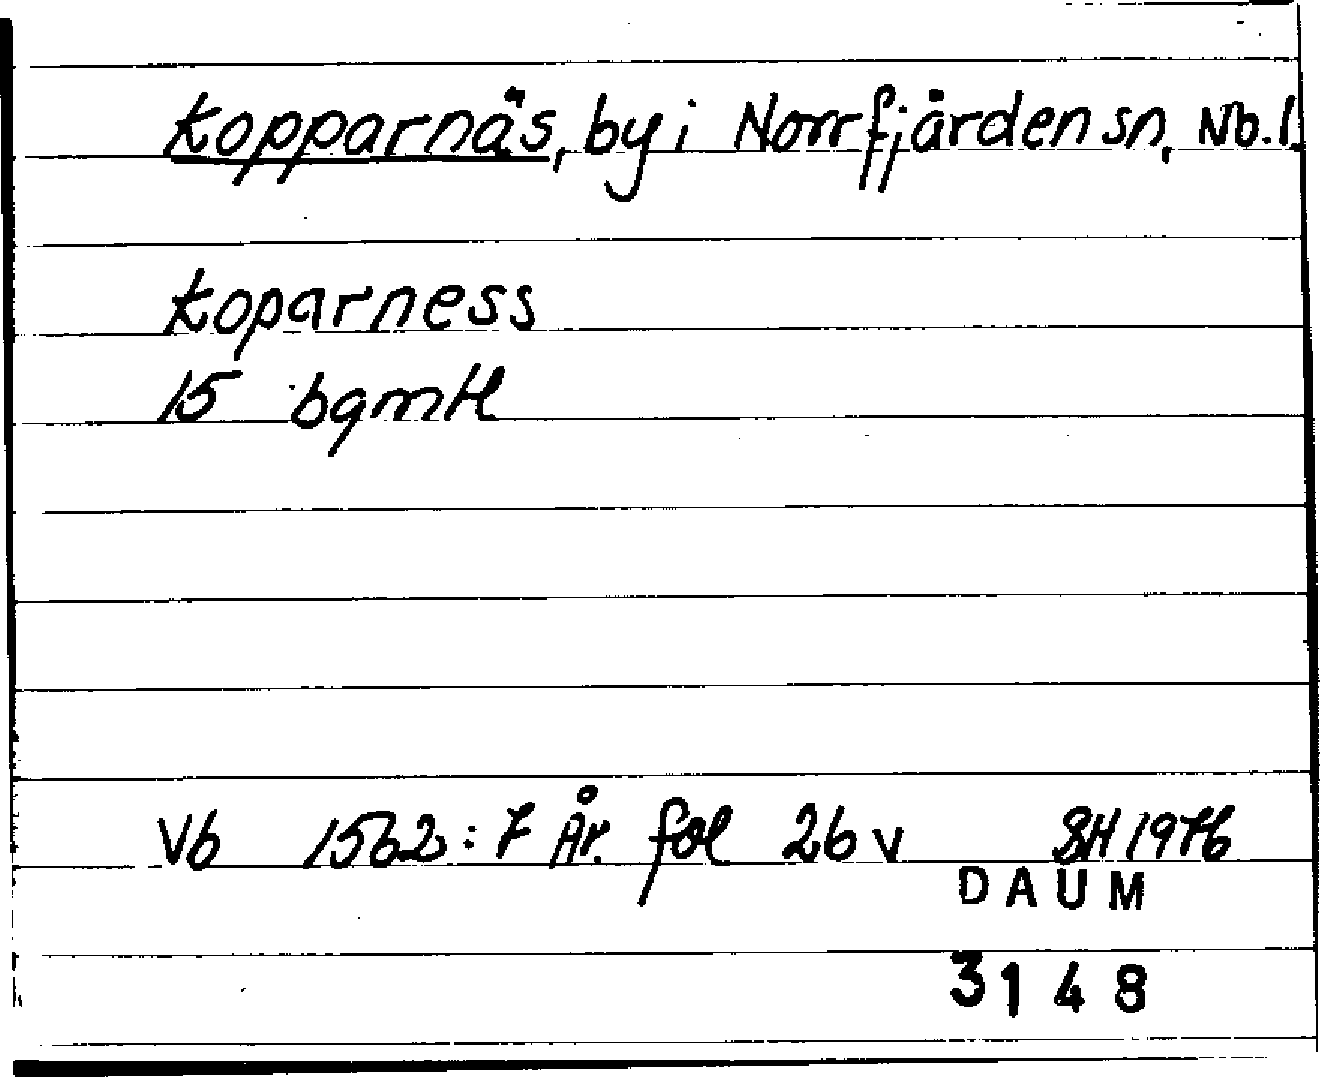 Kopparnäs, by i Norrfjärden sn, Nb.l.
Koparness
15 bgmtl
Vb 1562:7 År. fol 26 v SH 1976
DAUM
3148